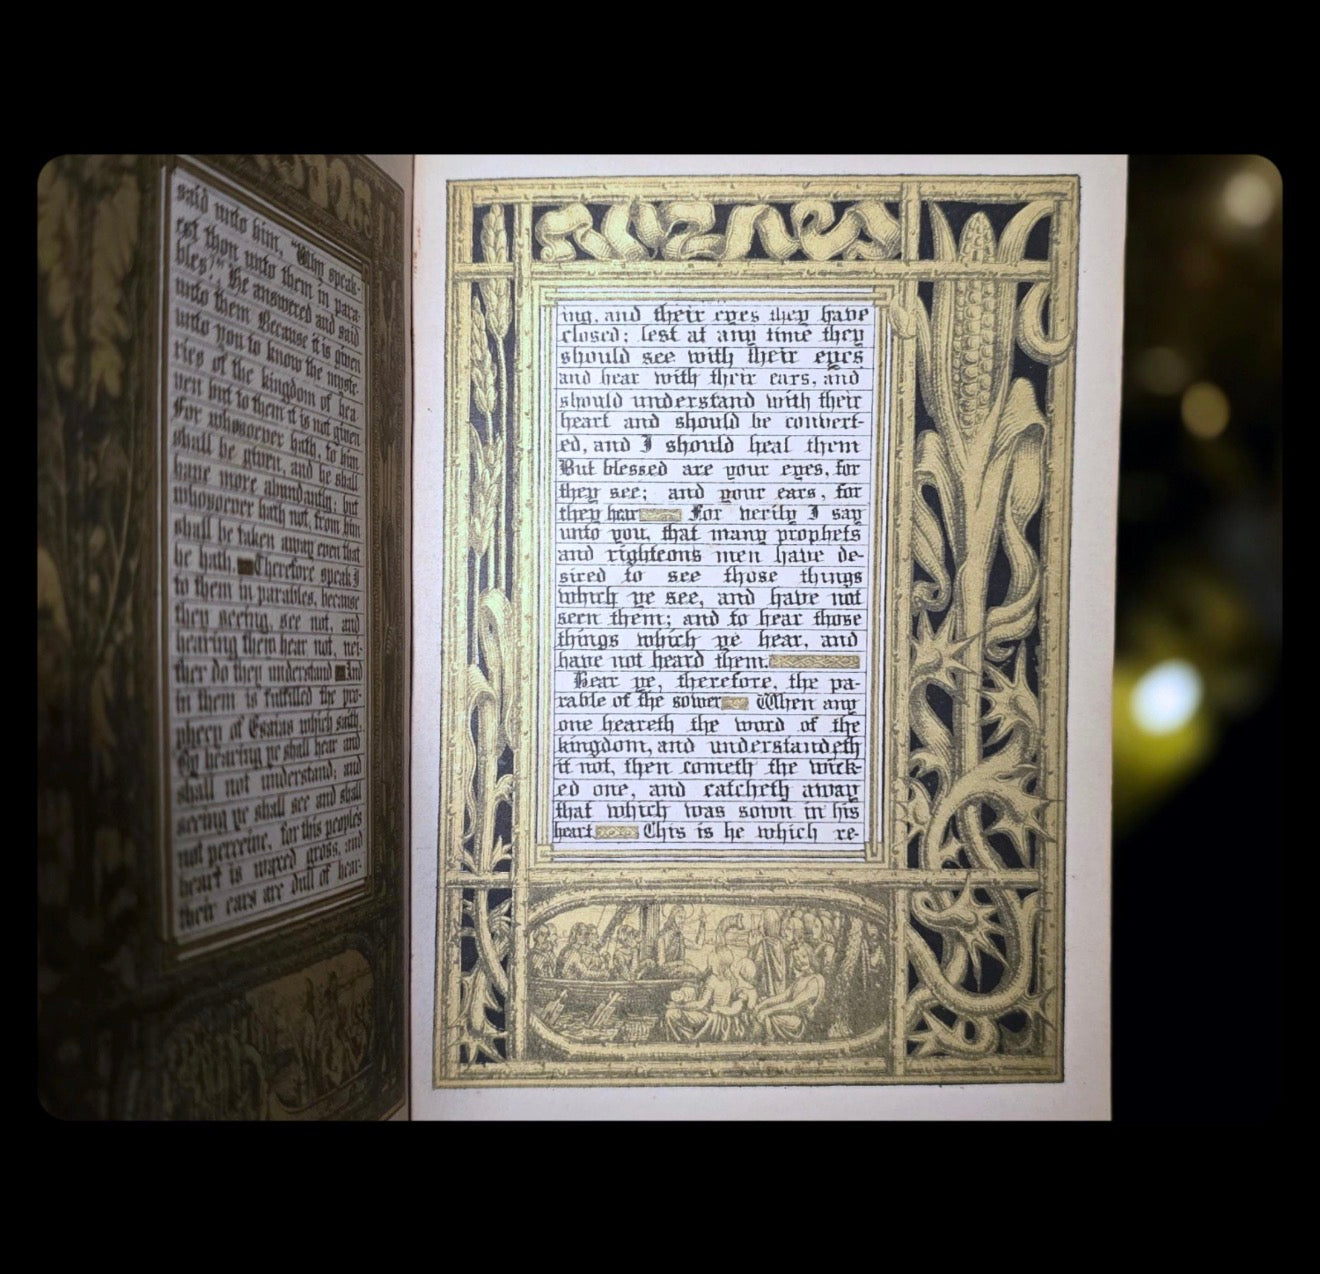 said unto him, "Why speak-
est thou unto them in para-
bles?" He answered and said
unto them Because it is given
unto you to know the myste-
ries of the kingdom of hea
ven but to them it is not given
For whosoever hath, to him
shall be given, and he shall
have more abundantly; but
whosoever hath not, from him
shall be taken away even that
he hath. Therefore speak I
to them in parables, because
they seeing, see not, and
hearing them hear not, nei-
ther do they understand And
in them is fulfilled the pro-
phecy of Esaias which saith,
By hearing ye shall hear and
shall not understand; and
seeing ye shall see and shall
not perceive, for this people's
heart is waxed gross, and
their ears are dull of hear-
ing, and their eyes they have
closed; lest at any time they
should see with their eyes
and hear with their ears, and
should understand with their
heart and should be convert-
ed, and I should heal them
But blessed are your eyes, for
they see; and your ears, for
they hear For verily I say
unto you, that many prophets
and righteous men have de-
sired to see those things
which ye see, and have not
seen them; and to hear those
things which ye hear, and
have not heard them.
Hear ye, therefore, the pa-
rable of the sower When any
one heareth the word of the
kingdom, and understandeth
it not, then cometh the wick-
ed one, and catcheth away
that which was sown in his
heart. This is he which re-